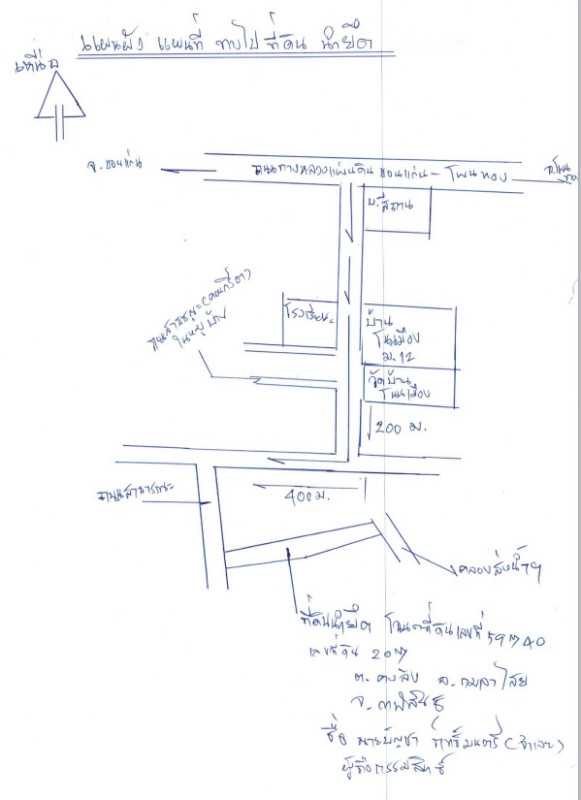 แผนผัง แผนที่ ทางไป ที่ดิน นำยึด
เหนือ
จ.ขอนแก่น
ถนนทางหลวงแผ่นดิน ขอนแก่น - โพนทอง
บ.สีถาน
ถนนสาธารณะ(คอนกรีต)
ในหมู่บ้าน
โรงเรียน
บ้าน
โนนเมือง
ม.12
วัดบ้าน
โนนเมือง
200 ม.
400 ม.
ถนนสาธารณะ
คลองส่งน้ำฯ
ที่ดินนำยึด โฉนดที่ดินเลขที่ 59740
เลขที่ดิน 207
ต. ดงลิง อ. กมลาไสย
จ. กาฬสินธุ์
ชื่อ นายบัญชา (จำเลย)
ผู้ถือกรรมสิทธิ์